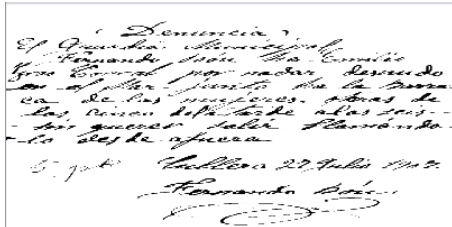 Denuncia
El Guardia Municipal
Fernando a Emilio
por nadar desnudo
en el Mar junto de la barra
ca de las mujeres. obras de
las cinco de la tarde a las seis
sin querer salir llamando
lo desde afuera
Cullera 27 Julio
Fernando